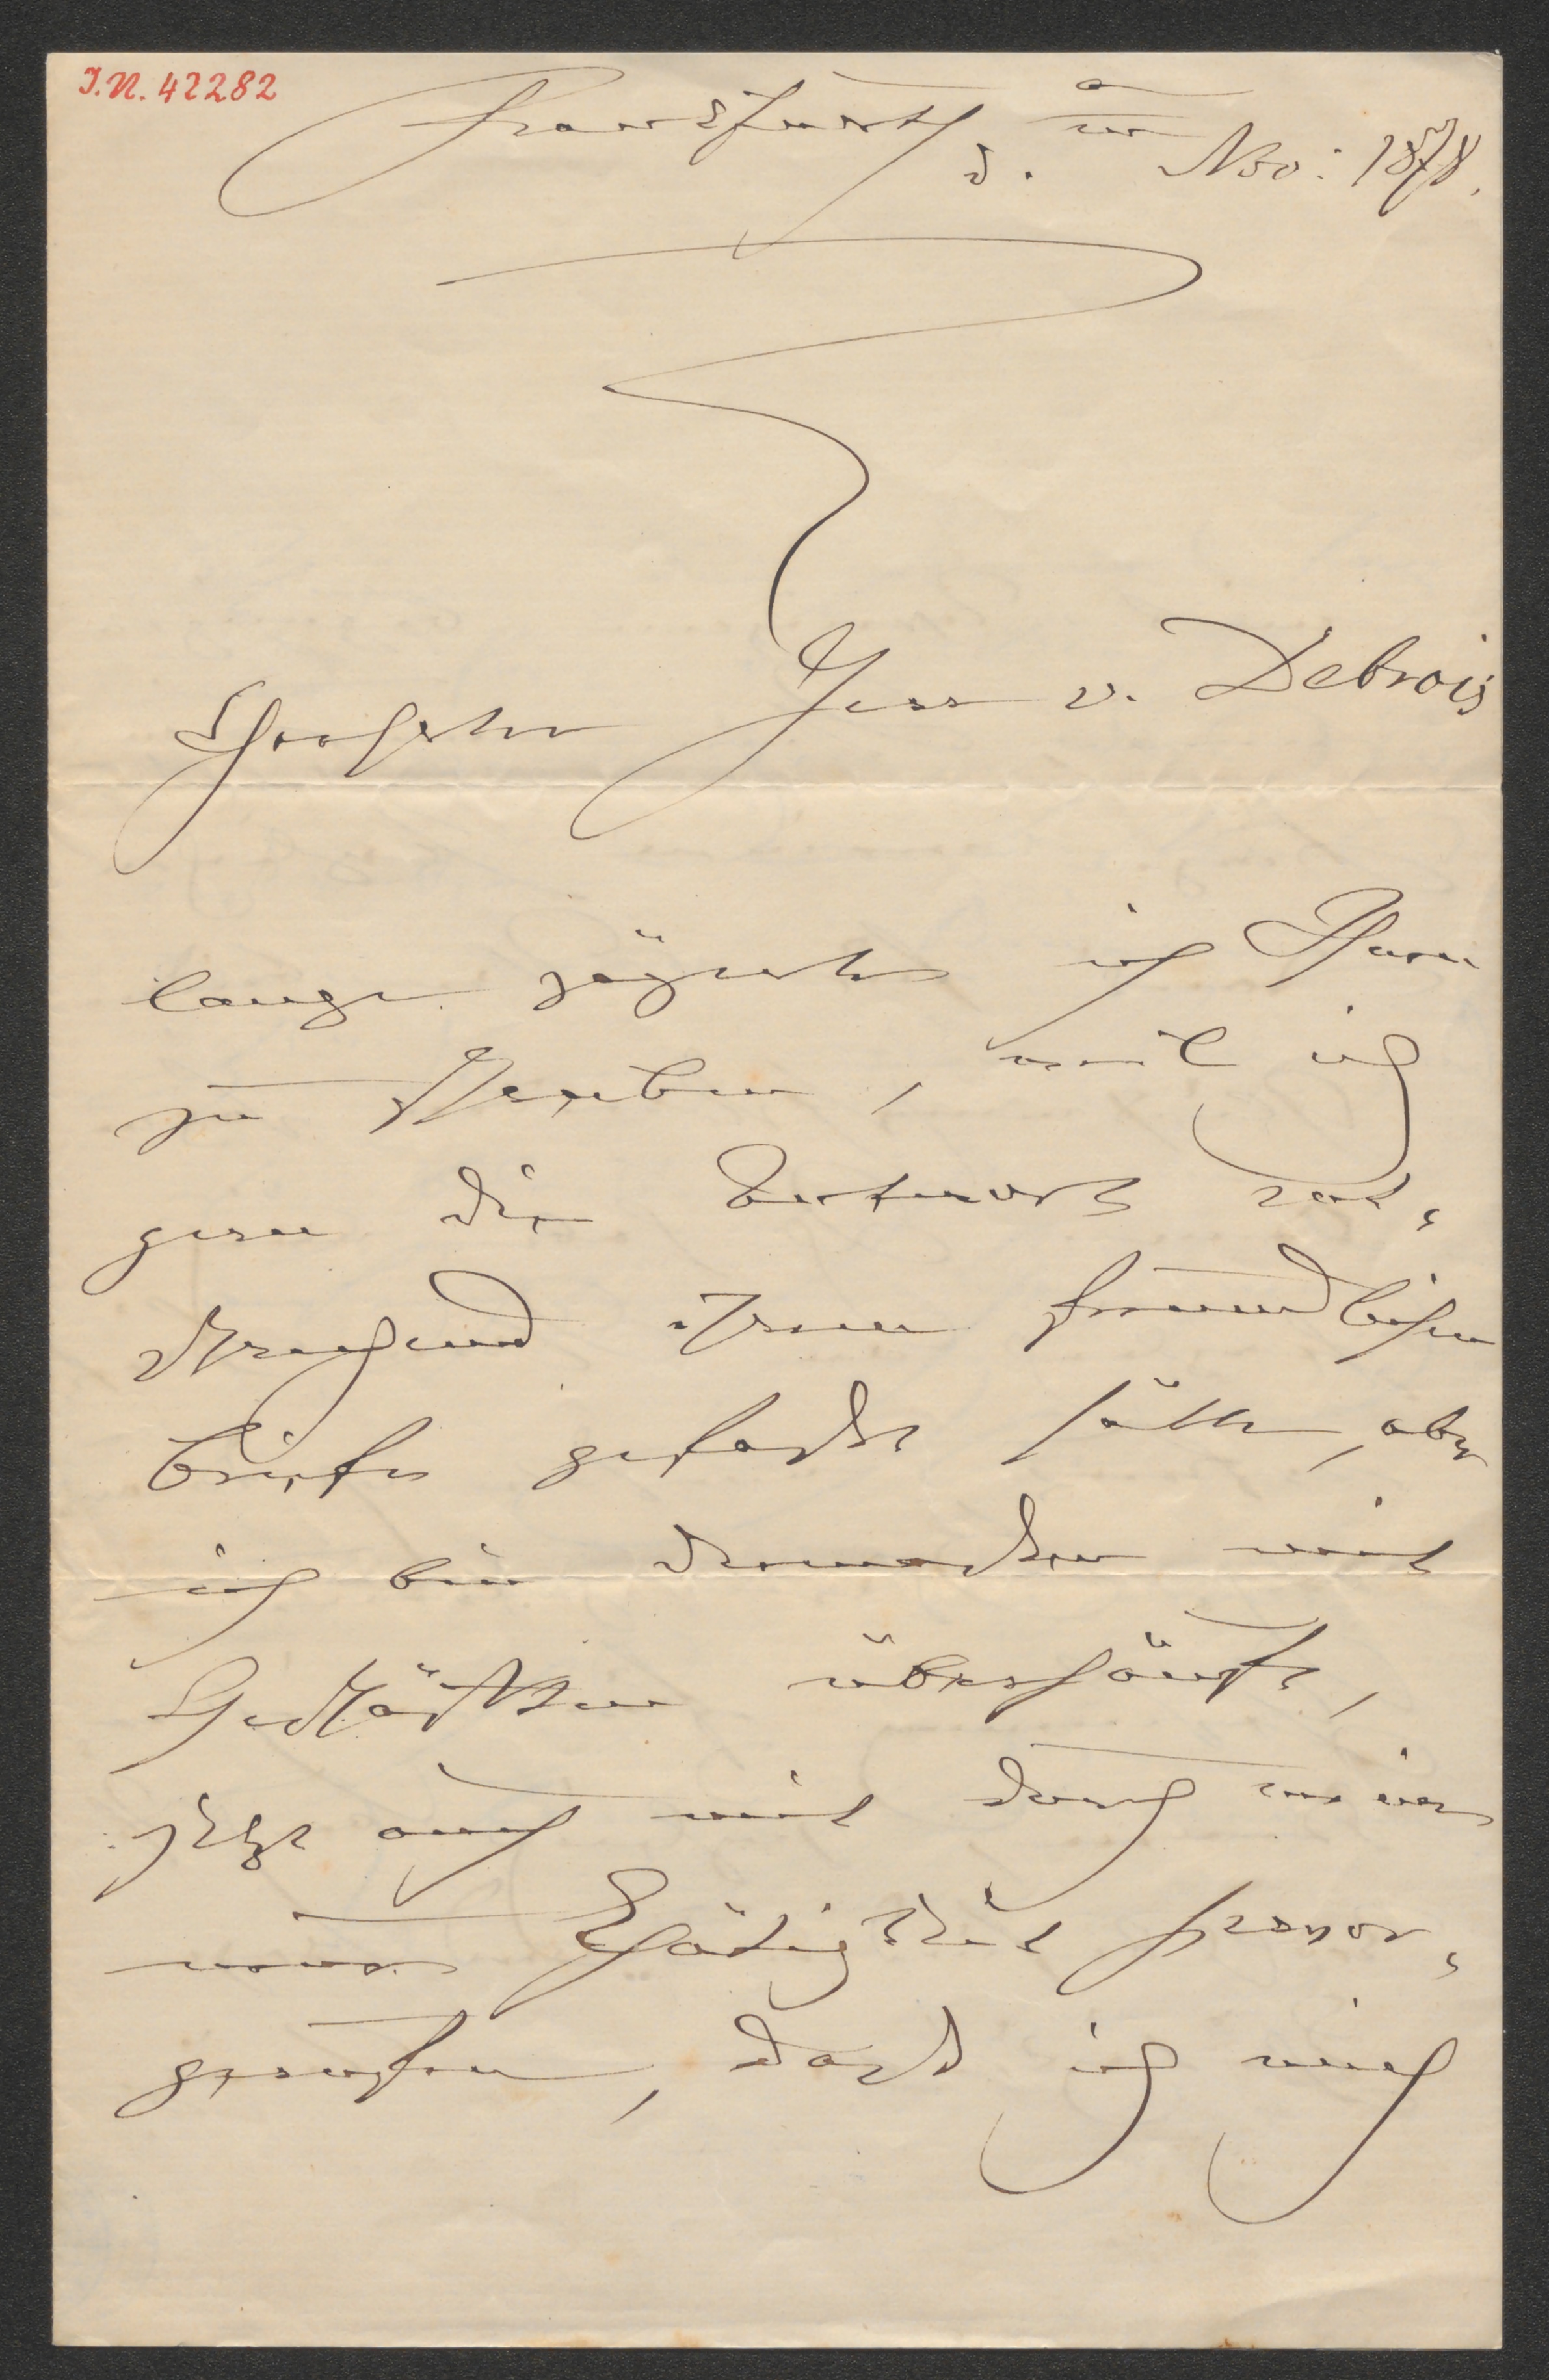 I.N. 42282
Frankfurth
d. Nov: 1878.
Geehrter Herr v. Debrois
lange zögerte ich Ihnen
zu schreiben, weil ich
gern die Antwort ent-
sprechend Ihrem freundlichen
Briefe gehabt hätte, aber
ich bin mit
Geschäften überhäuft,
jetzt auch mit durch meine
neue Thätigkeit hervor-
gerufen, dass ich mich